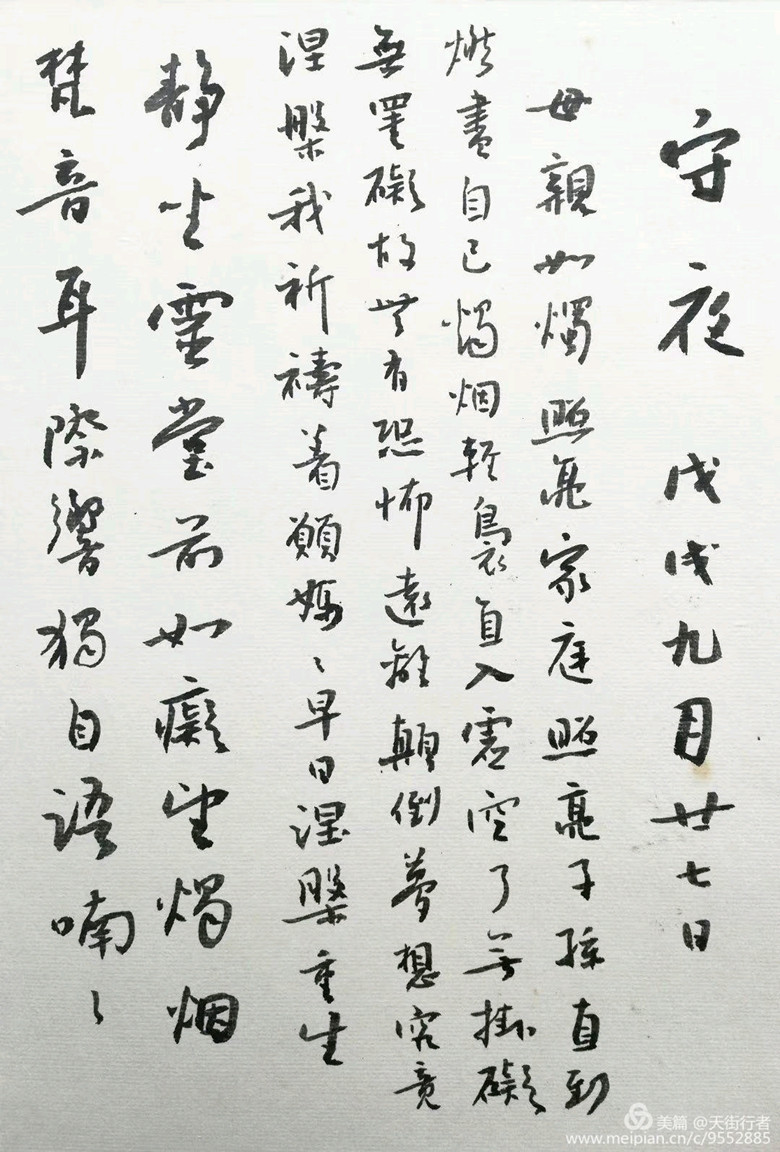 守夜 戊戌九月廿七日
母親如燭照亮家庭照亮子孫直到
燃盡自己燭烟輕裊直入虛空了無掛礙
無罣礙故無有恐怖遠離顛倒夢想究竟
涅槃我祈禱着願媽〻早日涅槃重生
靜坐靈堂前如癡望燭烟
梵音耳際響獨自語喃〻
美篇 @天街行者
www.meipian.cn/c/9552885